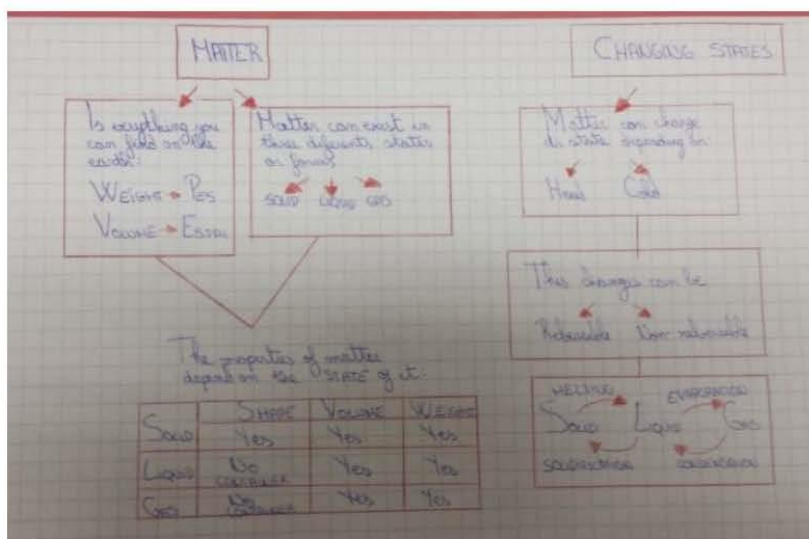 MATTER
Is everything you
can find on the
earth:
WEIGHT → PES
VOLUME → ESPAI
Matter can exist in
three diferents states
or forms
SOLID LIQUID GAS
The properties of matter
depend on the STATE of it:
SHAPE VOLUME WEIGHT
SOLID Yes Yes Yes
LIQUID No CONTAINER Yes Yes
GAS No CONTAINER Yes Yes
CHANGING STATES
Matter can change
di state depending on:
Head Cold
This changes can be
Reversible Non reversible
MELTING EVAPORATION
SOLID LIQUID GAS
SOLIDIFICATION CONDENSATION